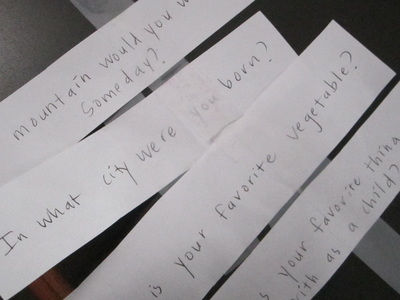 mountain would you w
Someday?
In what city were you born?
is your favorite vegetable?
s your favorite thing
ith as a child?